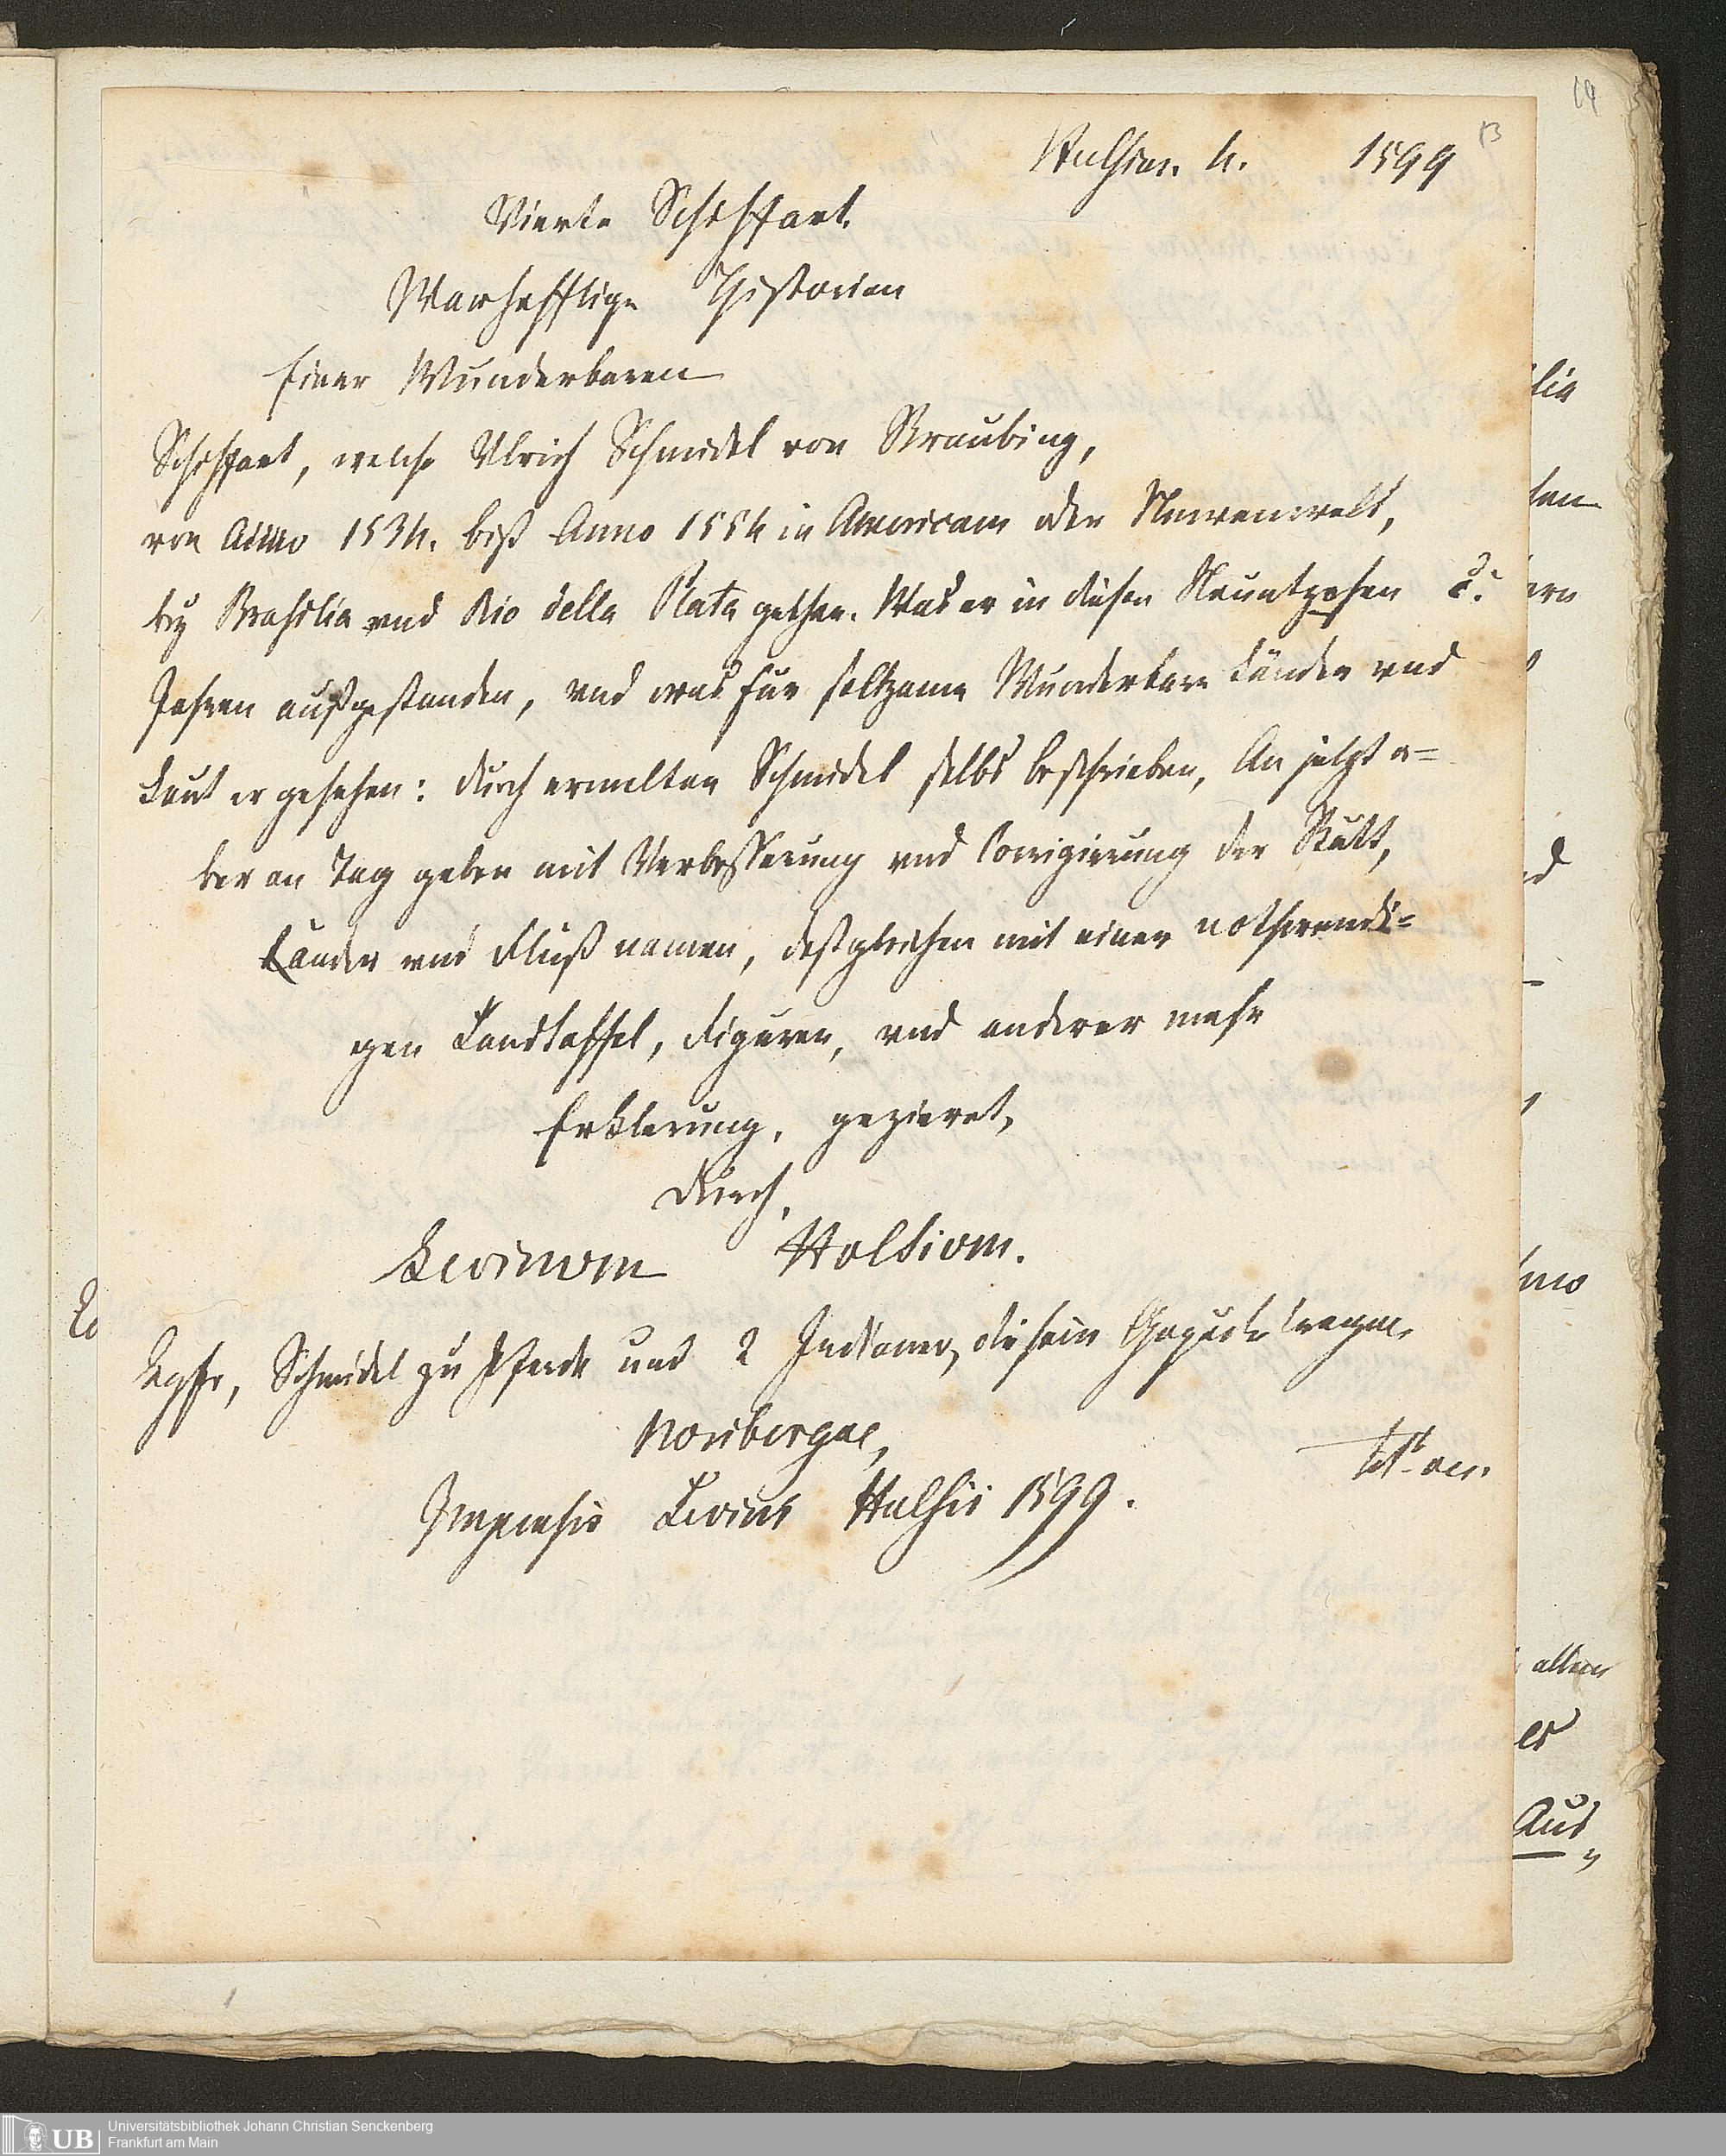 14
13
Hulsius. 4. 1599
Vierte Schiffart.
Warhafftige Historien
Einer Wunderbaren
Schiffart, welche Ulrich Schmidel von Straubing,
von Anno 1534. biß Anno 1554 in Americam oder Newenwelt,
bey Brasilia vnd Rio della Plata gethan. Was er in diesen Neuntzehen
Jahren außgestanden, vnd was für seltzame Wunderbare Länder vnd
Leut er gesehen: durch ermelten Schmidel selbs beschrieben, An jetzt a=
ber an Tag geben mit Verbesserung vnd Corrigierung der Stätt,
Länder vnd Fluß namen, deßgleichen mit einer nothwendi=
gen Landtaffel, Figuren, vnd anderer mehr
Erklerung, gezieret,
Durch,
Levinum Hulsium.
Kpfr, Schmidel zu Pferde und 2 Indianer, die sein Gepäck tragen.
Noribergae,
Impensis Levini Hulsii 1599.
lia
d
allen
er
Aus
Universitätsbibliothek Johann Christian Senckenberg
Frankfurt am Main
UB